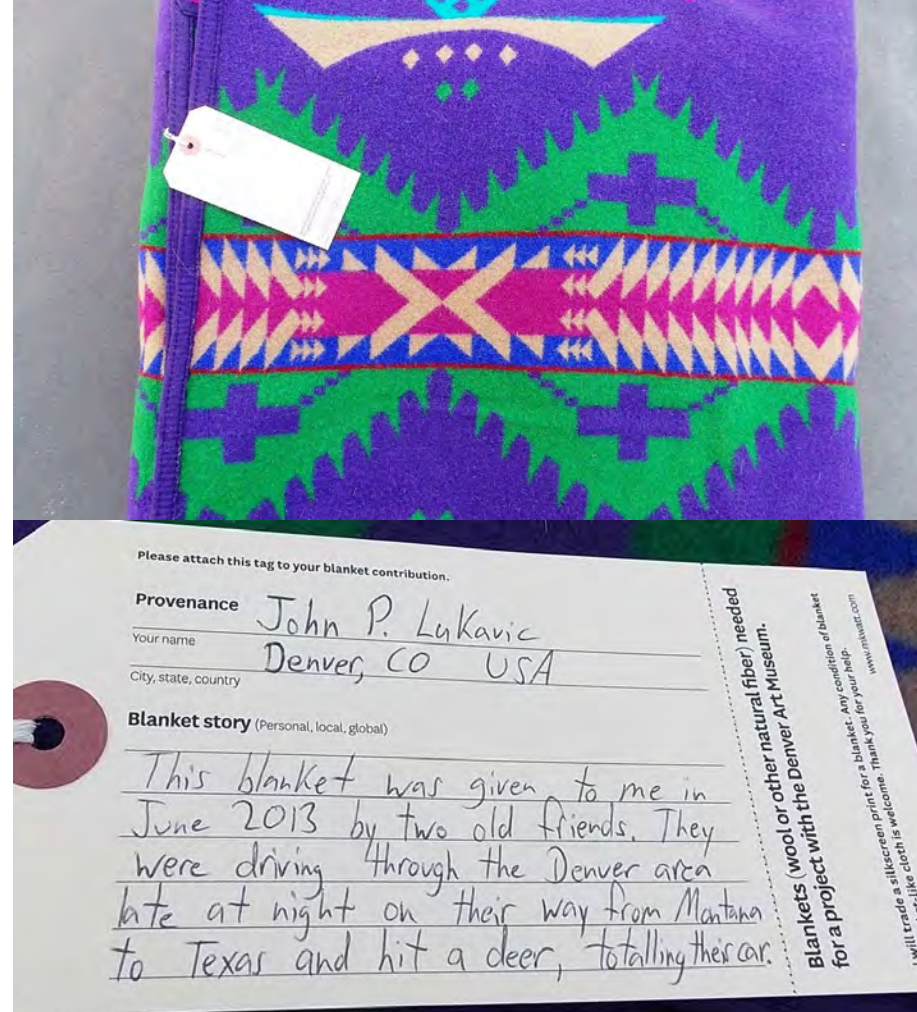 Please attach this tag to your blanket contribution.
Provenance John P. Lukavic
Your name
Denver, CO USA
City, state, country
Blanket story (Personal, local, global)
This blanket was given to me in
June 2013 by two old friends. They
were driving through the Denver area
late at night on their way from Montana
to Texas and hit a deer, totalling their car.
Blankets (wool or other natural fiber) needed
for a project with the Denver Art Museum.
will trade a silkscreen print for a blanket. Any condition of blanket
-like cloth is welcome. Thank you for your help.
www.mkwatt.com